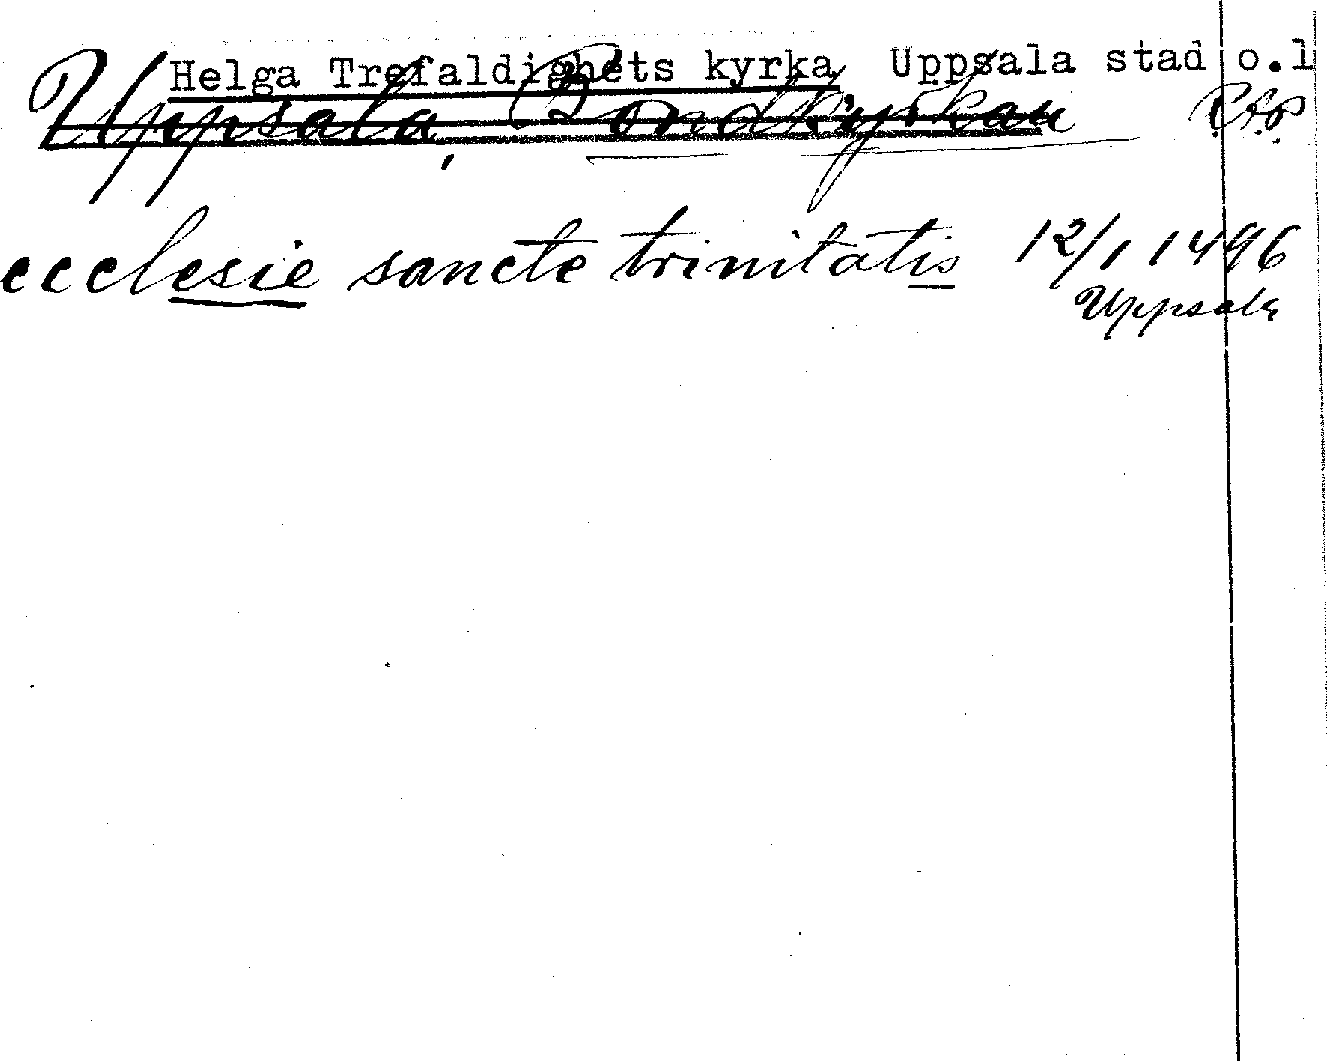 Helga Trefaldighets kyrka Uppsala stad o.l
Uppsala, Bondkyrkan R.A.P.
ecclesie sancte trinitatis 12/1 1496
Uppsala